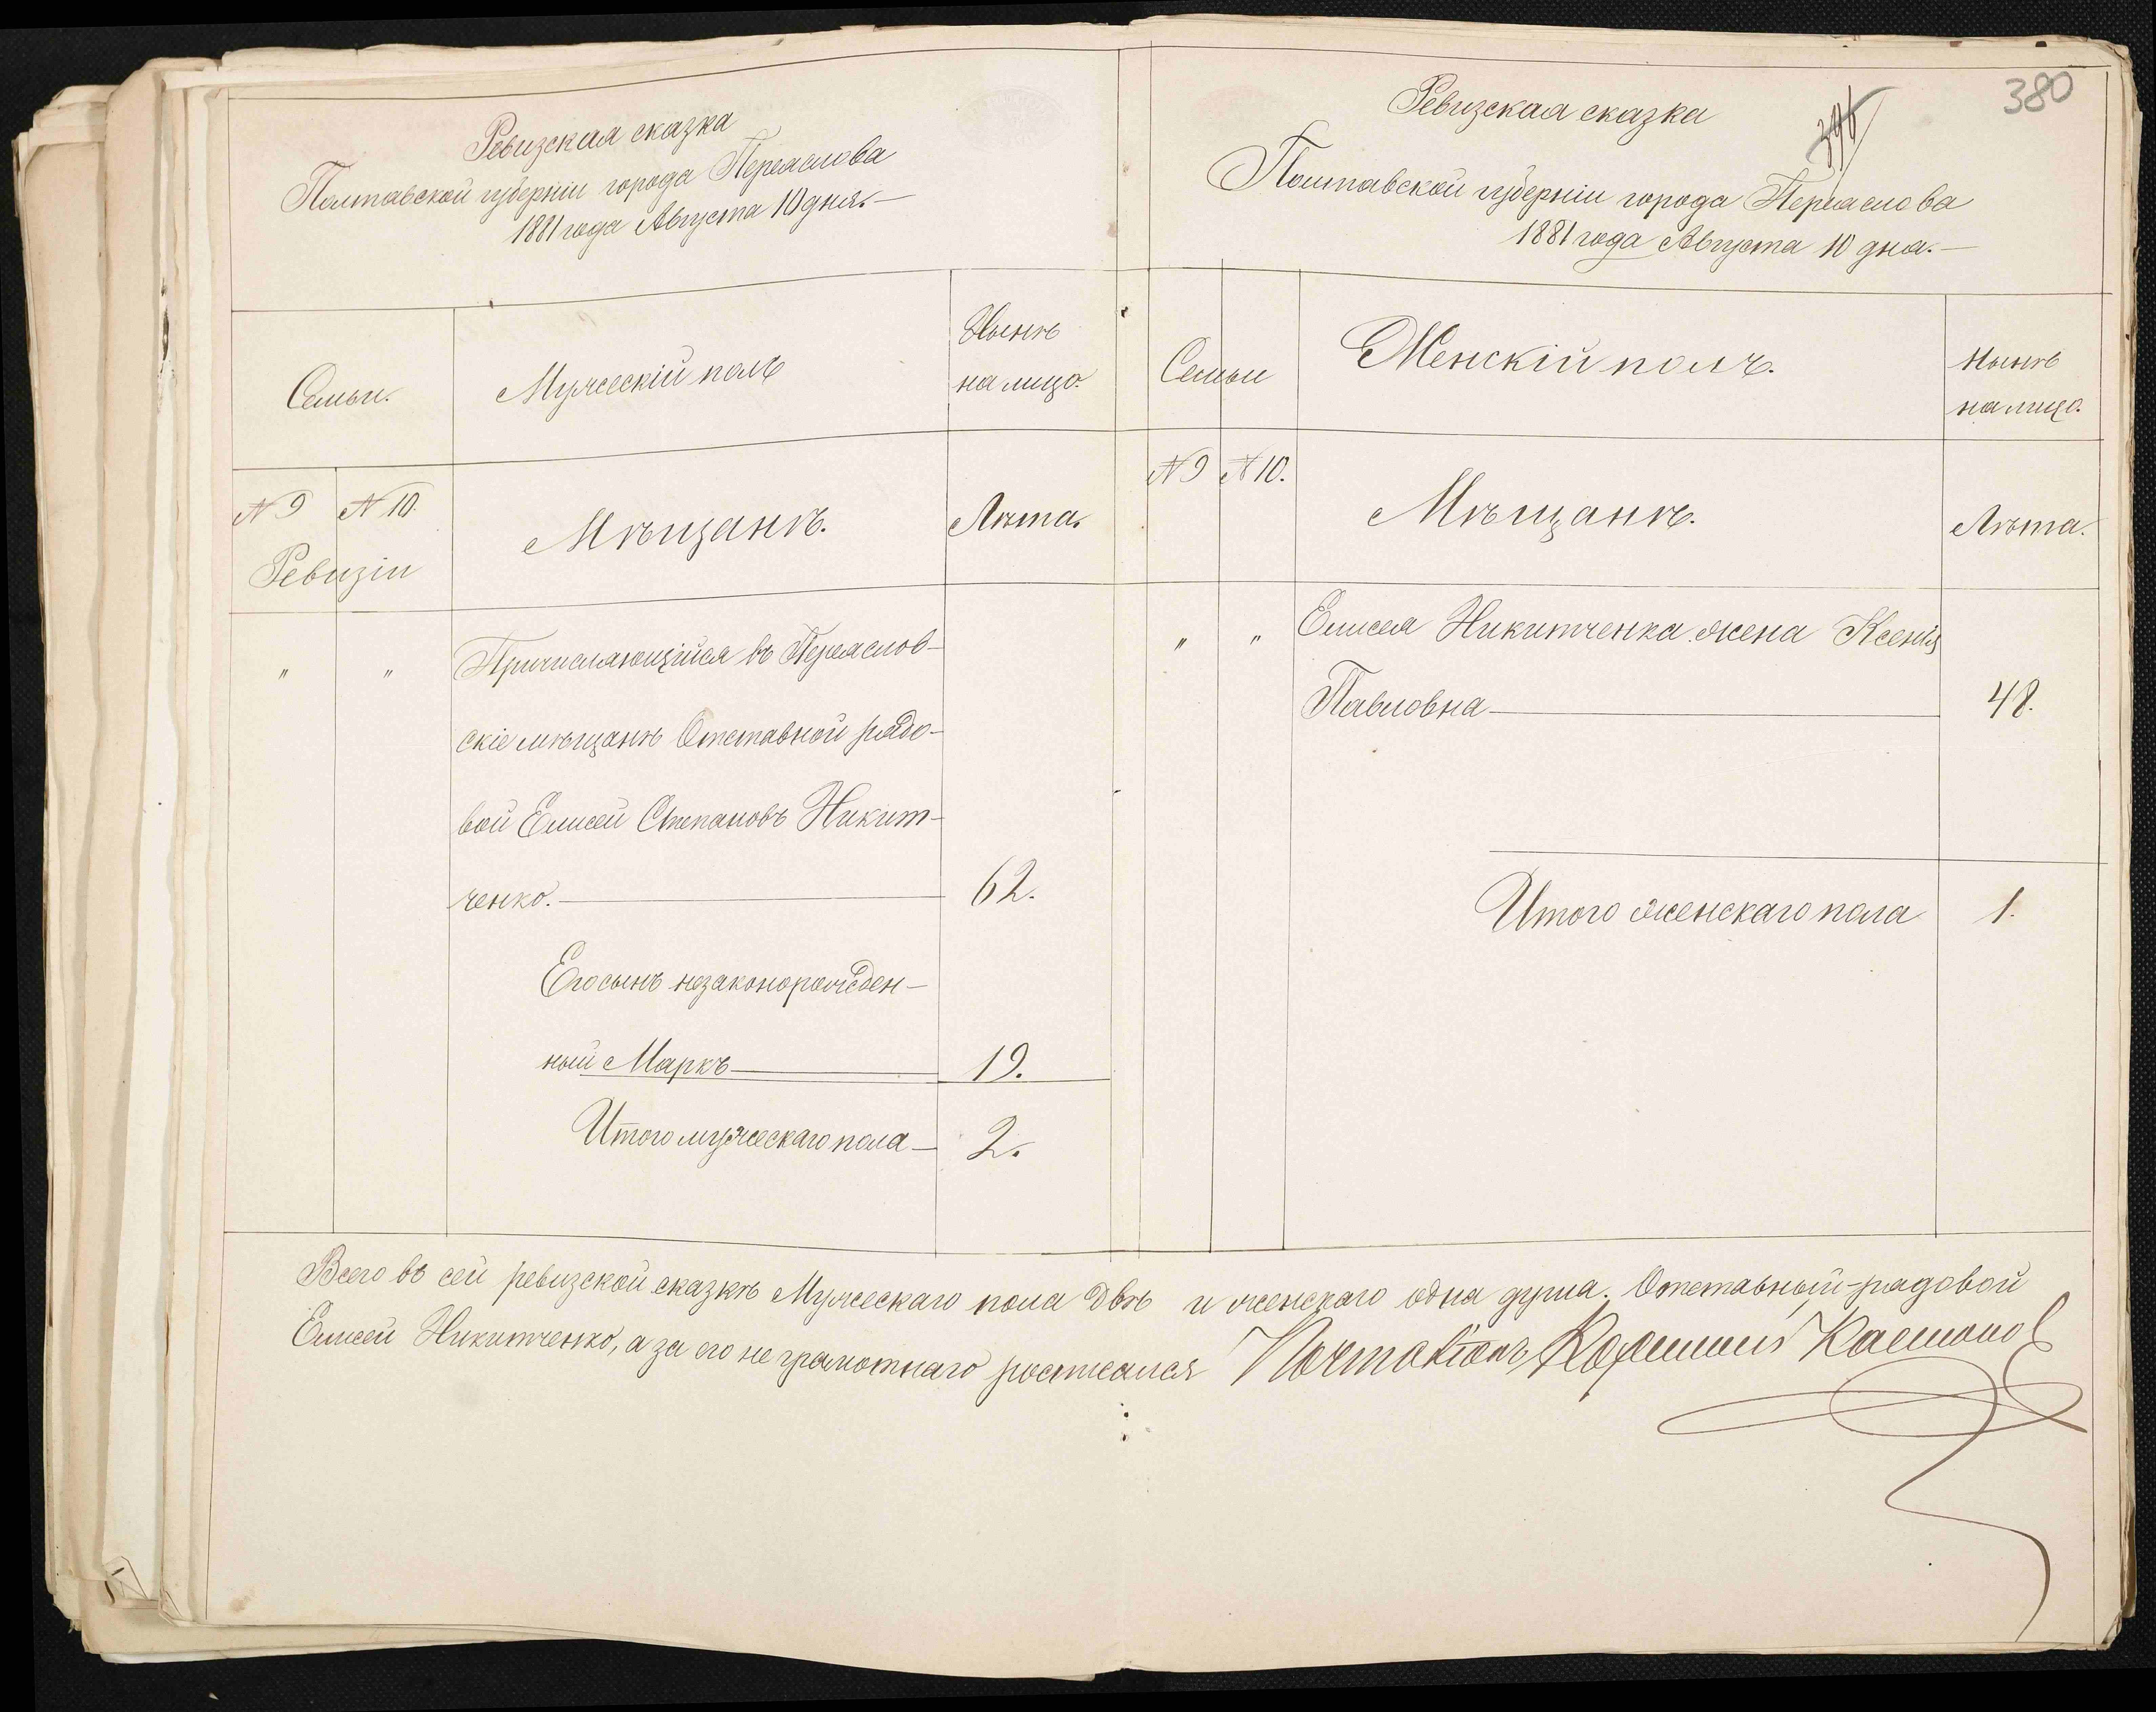 Ревизская сказка
Полтавской губерніи города Переяслова
1881 года Августа 10 дня.—
Семьи.
Мужескій полъ
Нынѣ
на лицо.
№ 9 № 10.
Ревизіи
Мѣщанѣ.
Лѣта.
" "
Причисляющійся въ Переяслов-
скіе мѣщанѣ Отставной рядо-
вой Елисей Степановъ Никит-
ченко.— 62.
Его сынъ незаконорожден-
ный Маркъ— 19.
Итого мужескаго пола— 2.
380
Ревизская сказка
Полтавской губерніи города Переяслова
1881 года Августа 10 дня.—
Семьи
Женскій полъ.
Нынѣ
на лицо.
№ 9 № 10.
Мѣщанѣ.
Лѣта.
" "
Елисея Никитченка жена Ксенія
Павловна— 48.
Итого женскаго пола 1.
Всего въ сей ревизской сказкѣ Мужескаго пола двѣ и женскаго одна душа. Отставный рядовой
Елисей Никитченко, а за его не грамотнаго росписался